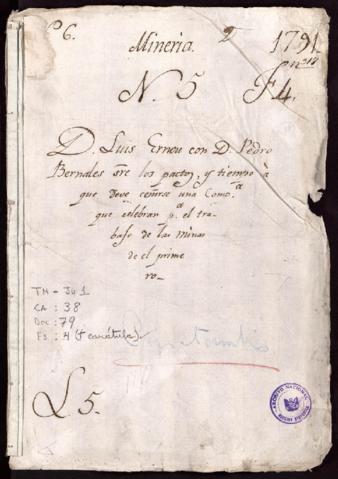 C6.
Mineria. 1791
N. 5 F4.
D. Luis Erneu con D. Pedro
Bernales sre los pactos, y tiempo à
que deve ceñirse una Compa.
que celebran pa. el tra-
bajo de las minas
de el prime
ro_
TM - JU 1
CA : 38
DOC : 79
FS : 4 (+ carátula)
L 5.
ARCHIVO NACIONAL